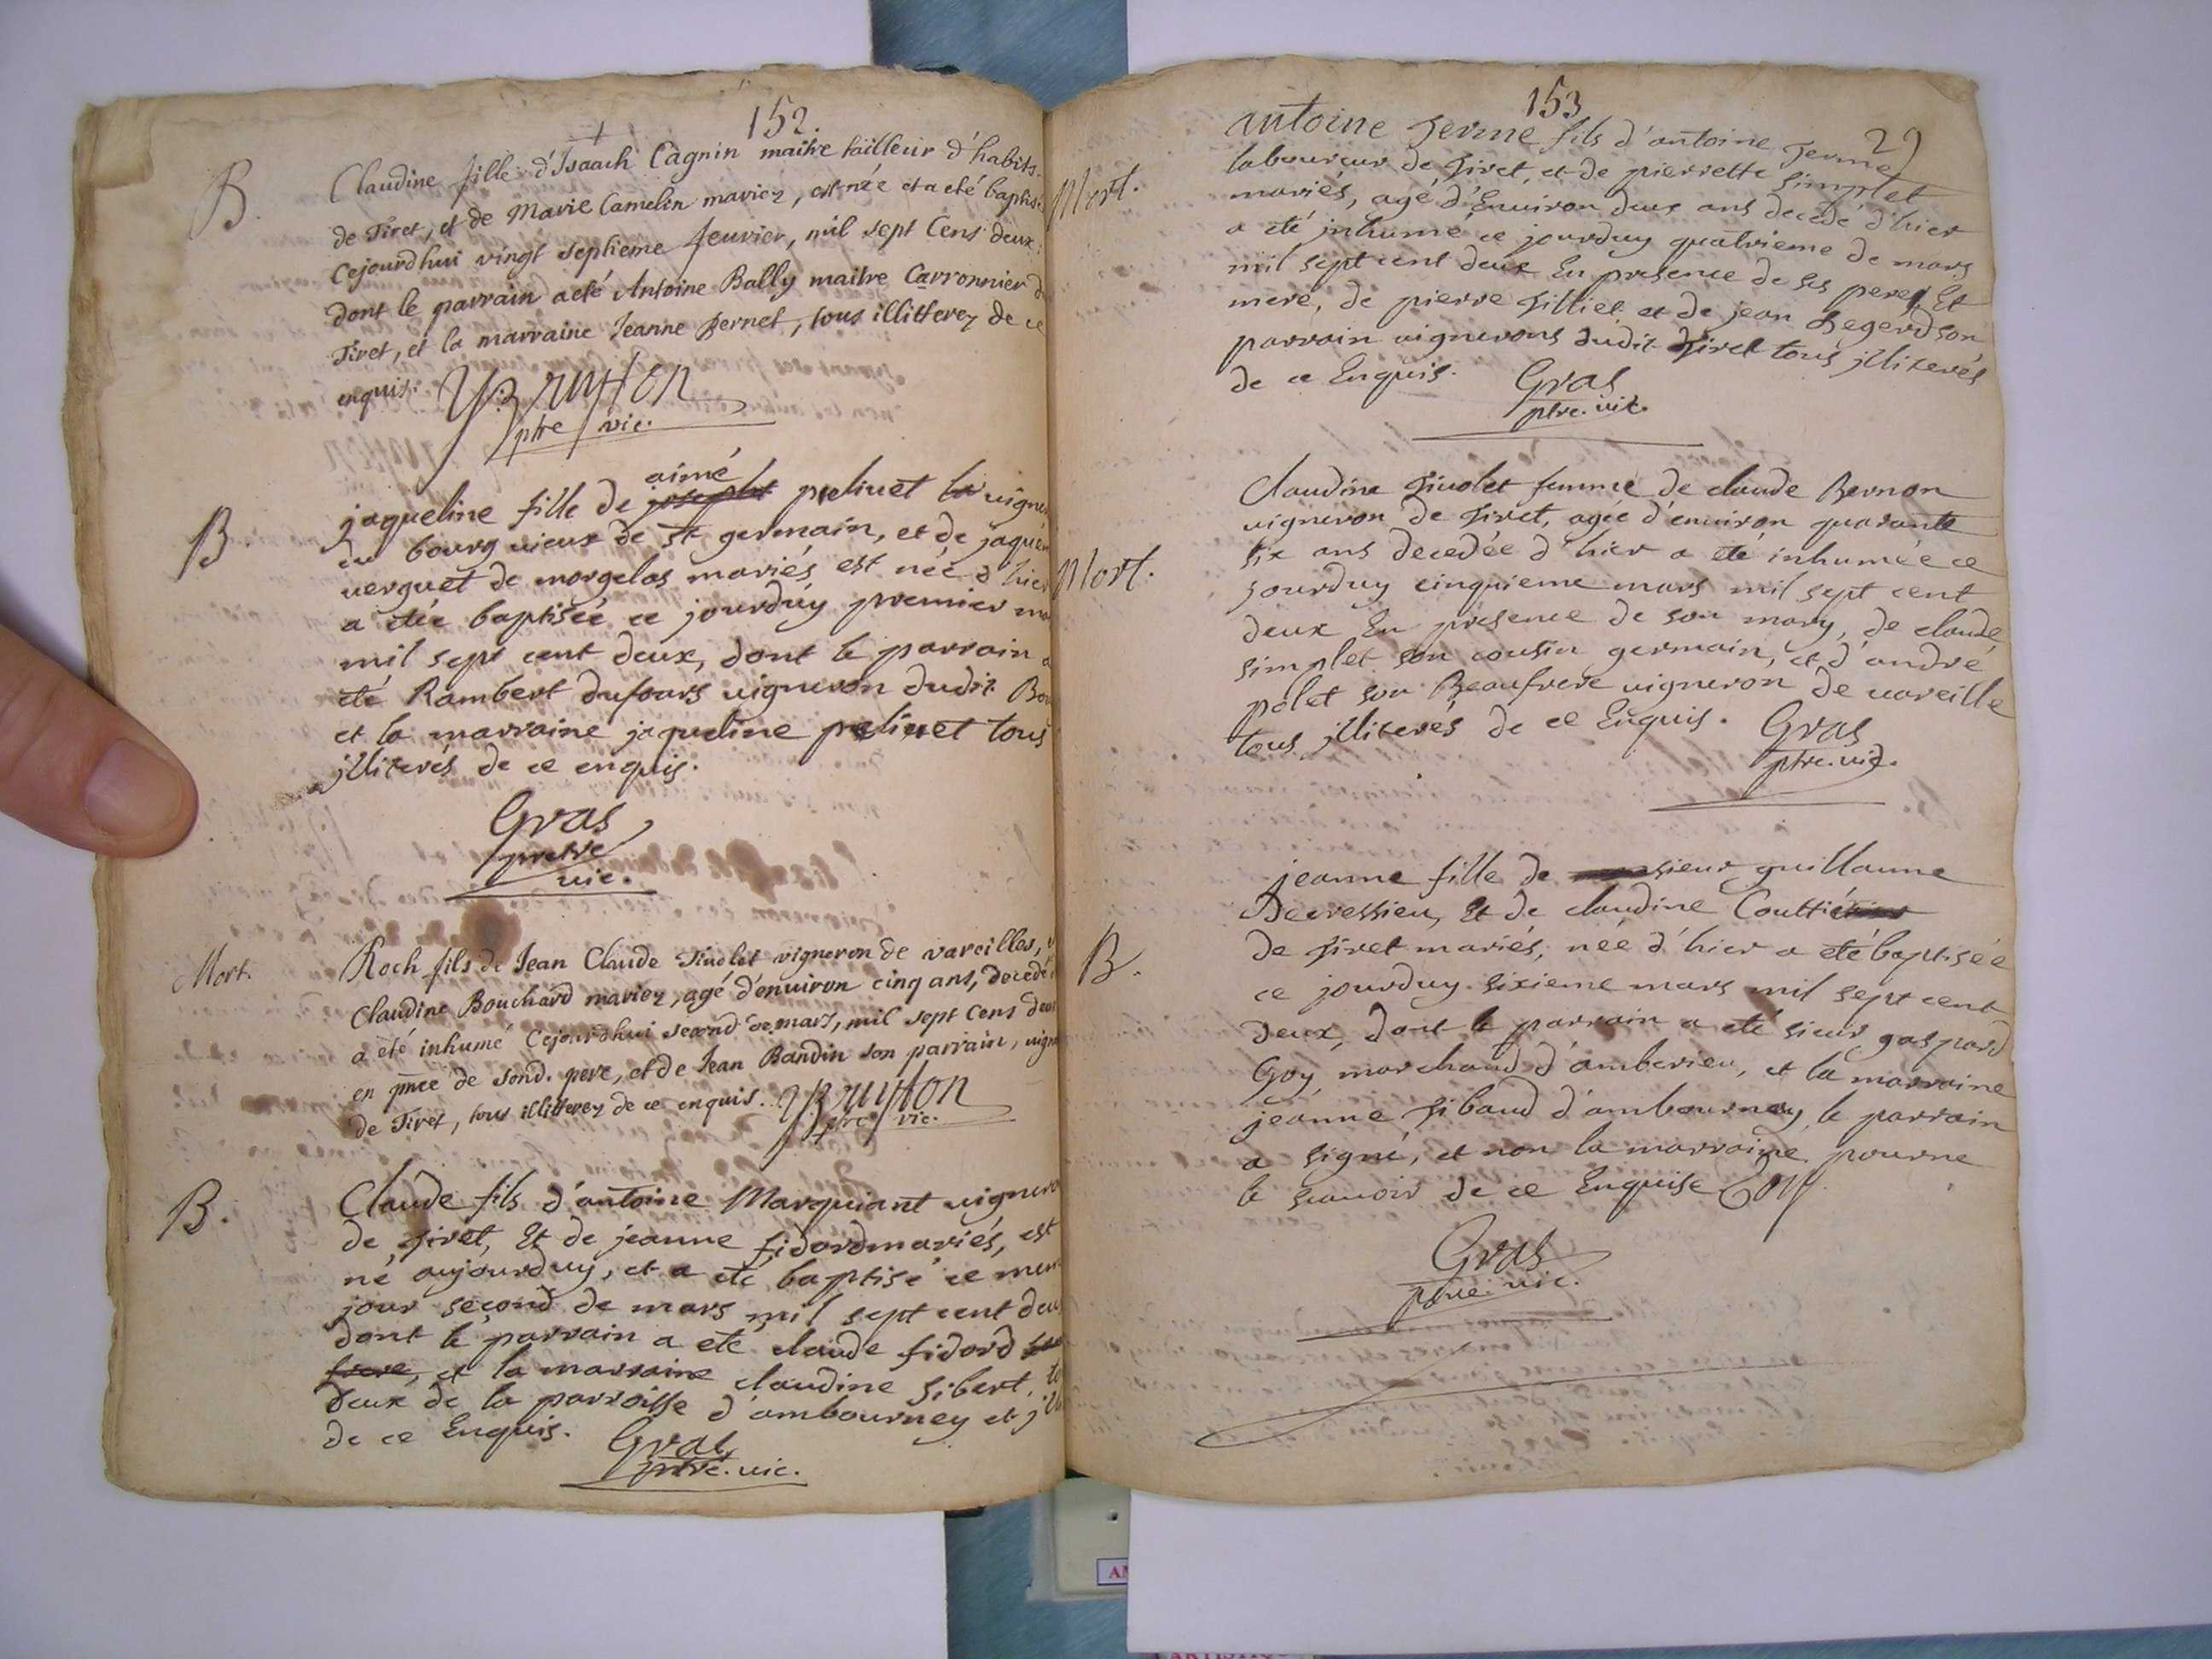 152.
B.
Claudine fille d'Isaach Cagnin maitre tailleur d'habits
de Tiret, et de Marie Camelin mariez, est née et a eté baptis
Cejourdhui vingt septieme feuvier, mil sept Cens deux
dont le parrain a eté Antoine Bally maitre Carronnier d
Tiret, et la marraine Jeanne Pernet, tous illitterez de ce
enquis.
ptre vic.
aimé
B.
jaqueline fille de joseph pelivet la vigner
du bourg vieux de st germain, et de jaquem
verguet de morgelas mariés est née d'hier
a etée baptisée ce jourduy premier ma
mil sept cent deux, dont le parrain a
eté Rambert dufours vigneron dudit Bou
et la marraine jaqueline pelivet tous
jlliterés de ce enquis.
Gras
pretre
vic.
Mort.
Roch fils de Jean Claude Tivolet vigneron de vareilles,
Claudine Bouchard mariez, agé d'environ cinq ans, decedé
a eté inhumé Cejourdhui second de mars, mil sept Cens deux
en pnce de sond. pere, et de Jean Baudin son parrain, vign
de Tiret, tous illitterez de ce enquis.
ptre vic.
B.
Claude fils d'antoine Marquiant vignero
de tiret, Et de jeanne fidord mariés, est
né aujourduy, et a eté baptisé ce mem
jour second de mars mil sept cent deu
dont le parrain a eté claude fidord
frere, et la marraine claudine sibert, to
deux de la parroisse d'ambourney et jll
de ce Enquis.
Gras
ptre. vic.
153
29
Mort.
antoine Terme fils d'antoine Terme
laboureur de tiret, et de pierrette simplet
mariés, agé d'Environ deux ans decedé d'hier
a eté jnhumé ce jourduy quatrieme de mars
mil sept cent deux En presence de ses pere Et
mere, de pierre tilliet et de jean son
parrain vignerons dudit tiret tous jlliterés
de ce Enquis.
Gras
ptre. vic.
Mort.
Claudine tivolet femme de claude Bernon
vigneron de tiret, agée d'environ quarante
six ans decedée d'hier a eté inhumée ce
jourduy cinquieme mars mil sept cent
deux En presence de son mary, de claude
simplet son cousin germain, et d'andré
polet son Beaufrere vigneron de vareille
tous jlliterés de ce Enquis.
Gras
ptre. vic.
B.
jeanne fille de sieur guillaume
Decressieu, Et de claudine Couttier
de tiret mariés, née d'hier a eté baptisée
ce jourduy sixieme mars mil sept cent
deux, dont le parrain a eté sieur gaspard
Goy, marchand d'amberieu, et la marraine
jeanne sibaud d'ambournay, le parrain
a signé, et non la marraine pour ne
le scavoir de ce Enquise Goy
Gras
ptre. vic.